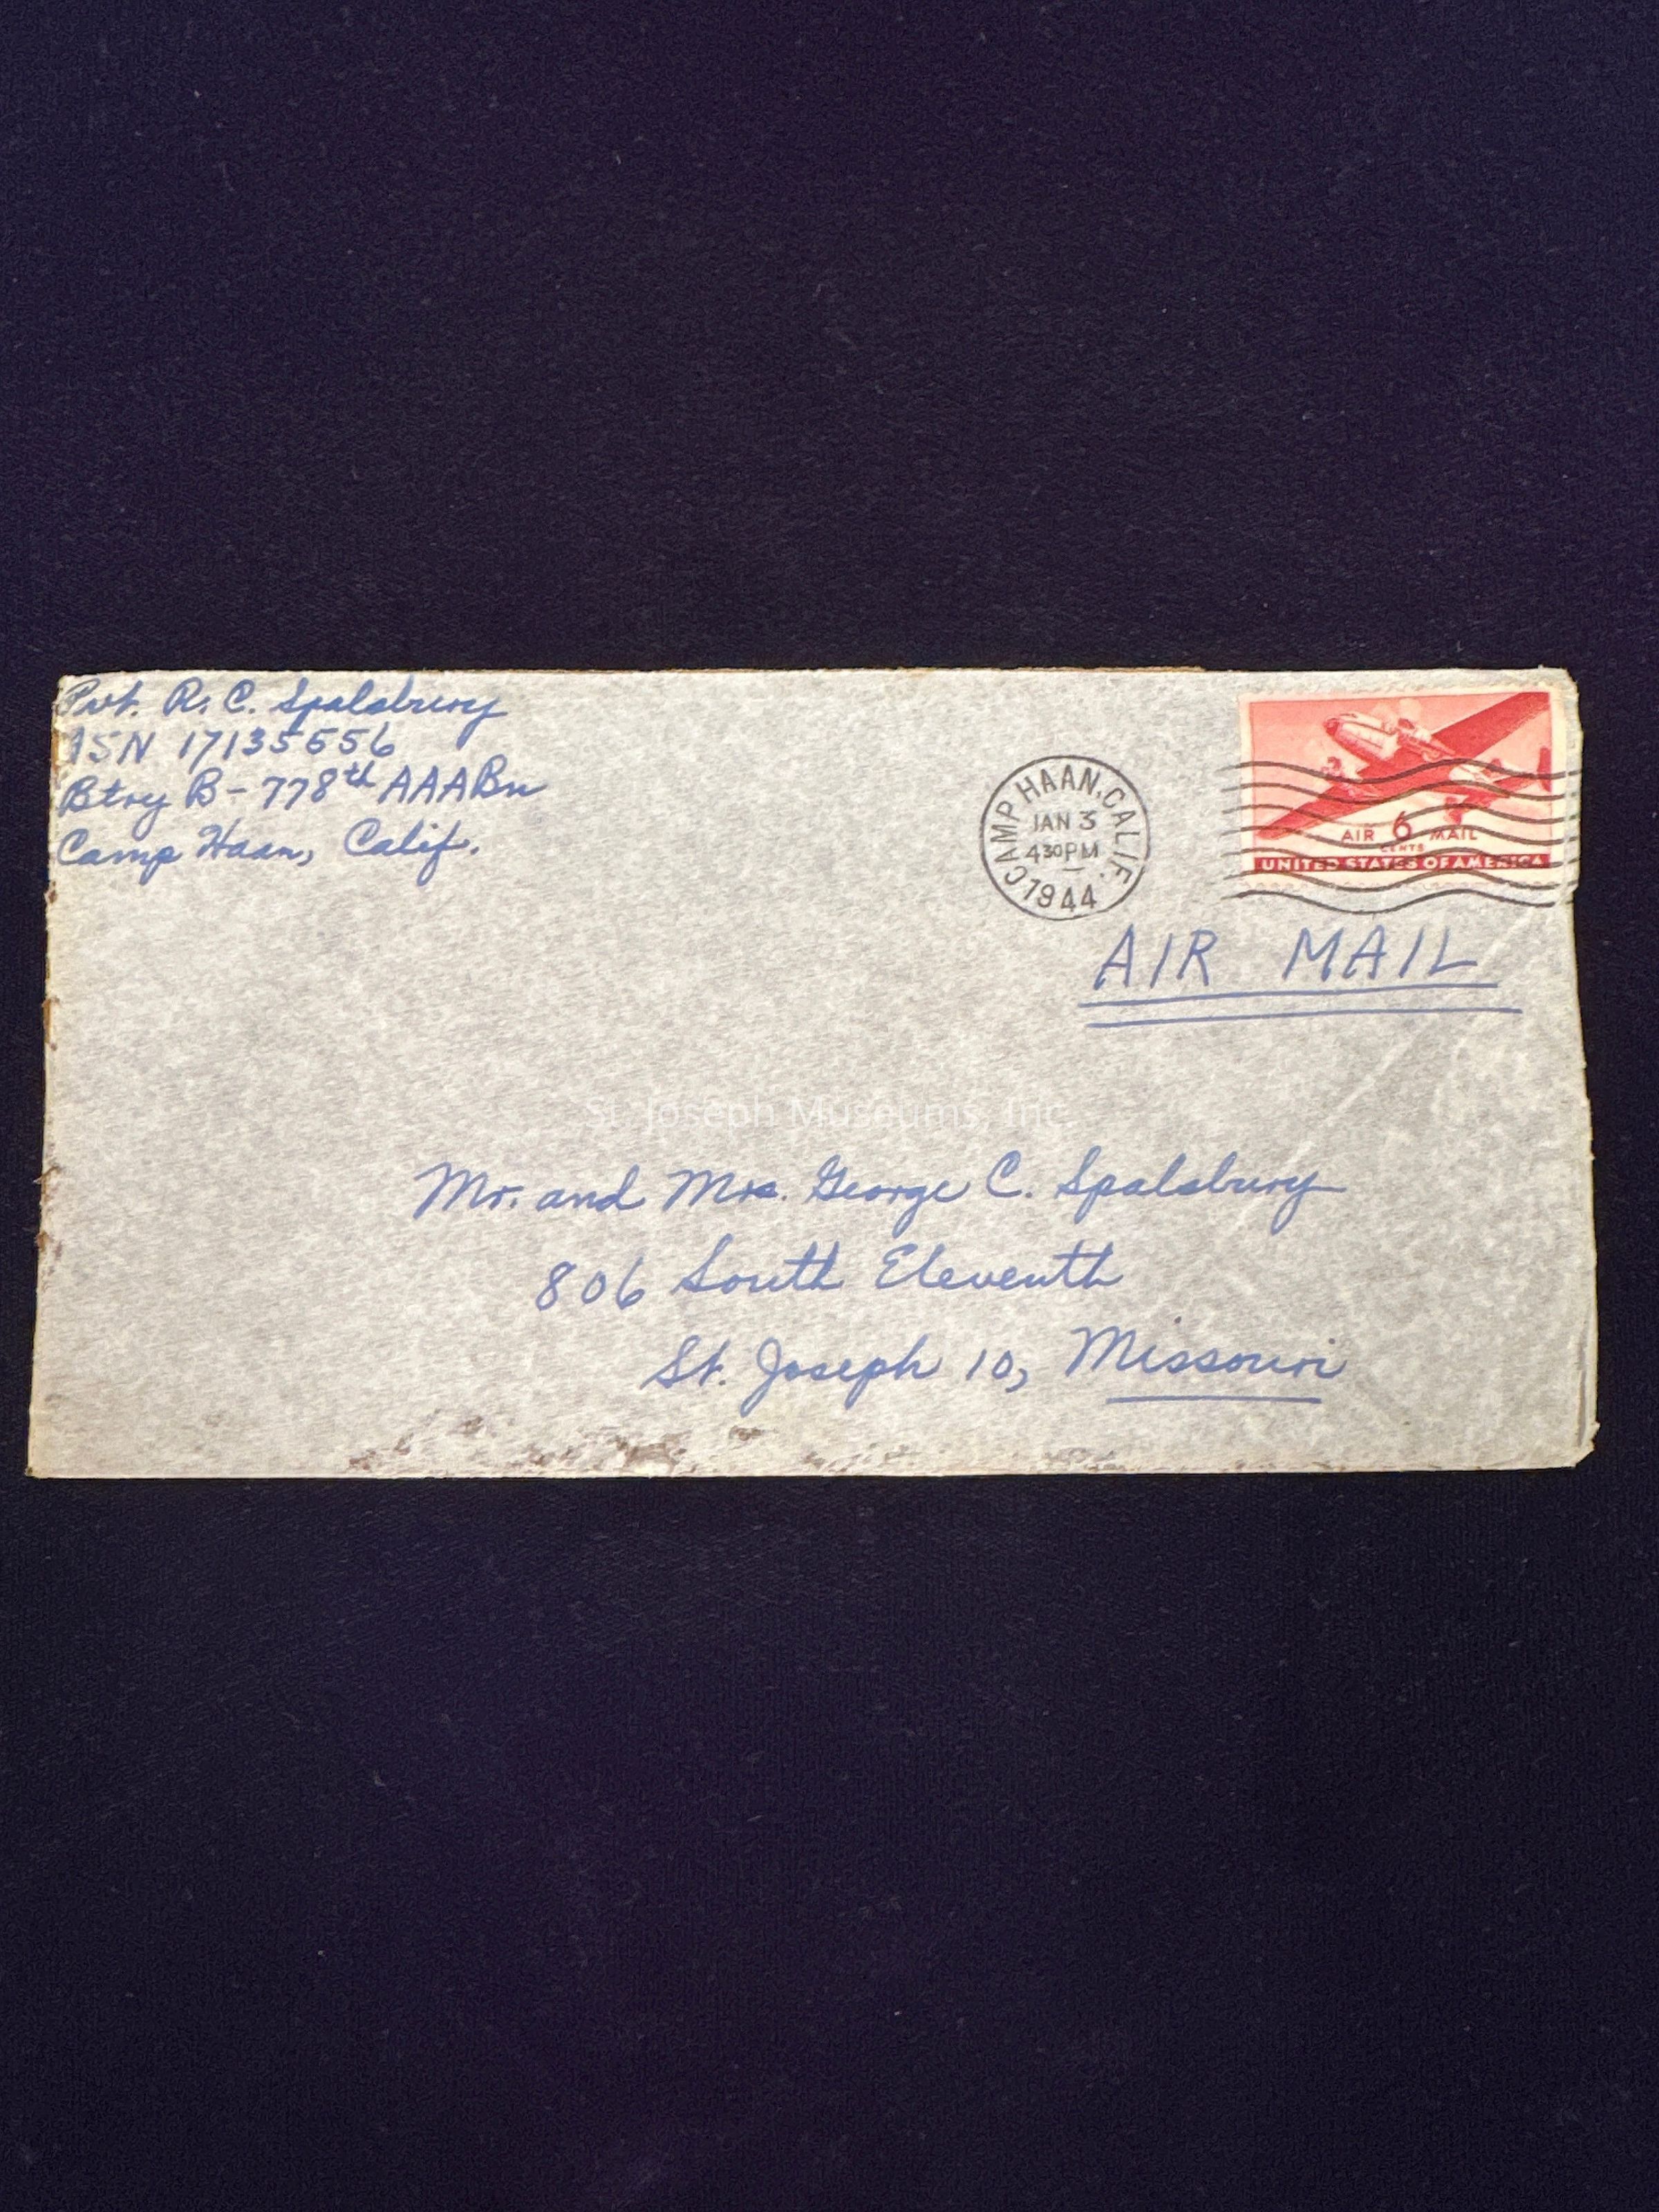 Pvt. R. C. Spalsbury
ASN 17135556
Btry B - 778th AAA Bn
Camp Haan, Calif.
CAMP HAAN, CALIF.
JAN 3
430 PM
1944
AIR 6 MAIL
CENTS
UNITED STATES OF AMERICA
AIR MAIL
St. Joseph Museums, Inc.
Mr. and Mrs. George C. Spalsbury
806 South Eleventh
St. Joseph 10, Missouri